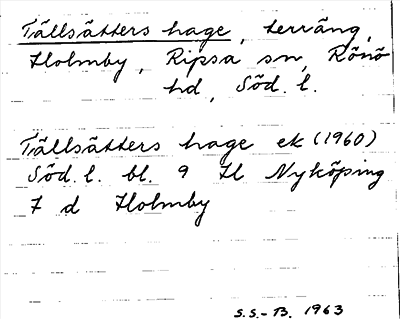 Tällsätters hage, terräng,
Holmby, Ripsa sn, Rönö
hd, Söd. l.
Tällsätters hage ek (1960)
Söd. l. bl. 9 H Nyköping
7 d Holmby
S.S.-B. 1963